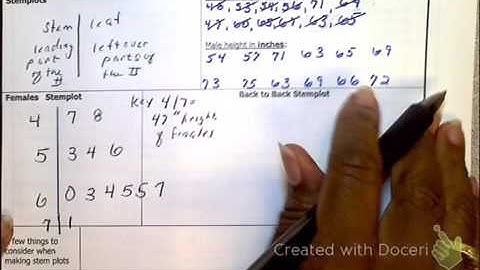 Stemplots
Stem | leaf
leading part of the # | leftover parts of the #
48, 53, 54, 56, 71, 69
47, 60, 65, 67, 63, 65
Male height in inches:
54 57 71 63 65 69
73 75 63 69 66 72
Females Stemplot
Key 4/7=
47" height
of females
Back to Back Stemplot
4 | 7 8
5 | 3 4 6
6 | 0 3 4 5 5 7
7 | 1
few things to
consider when
making stem plots
Created with Doceri